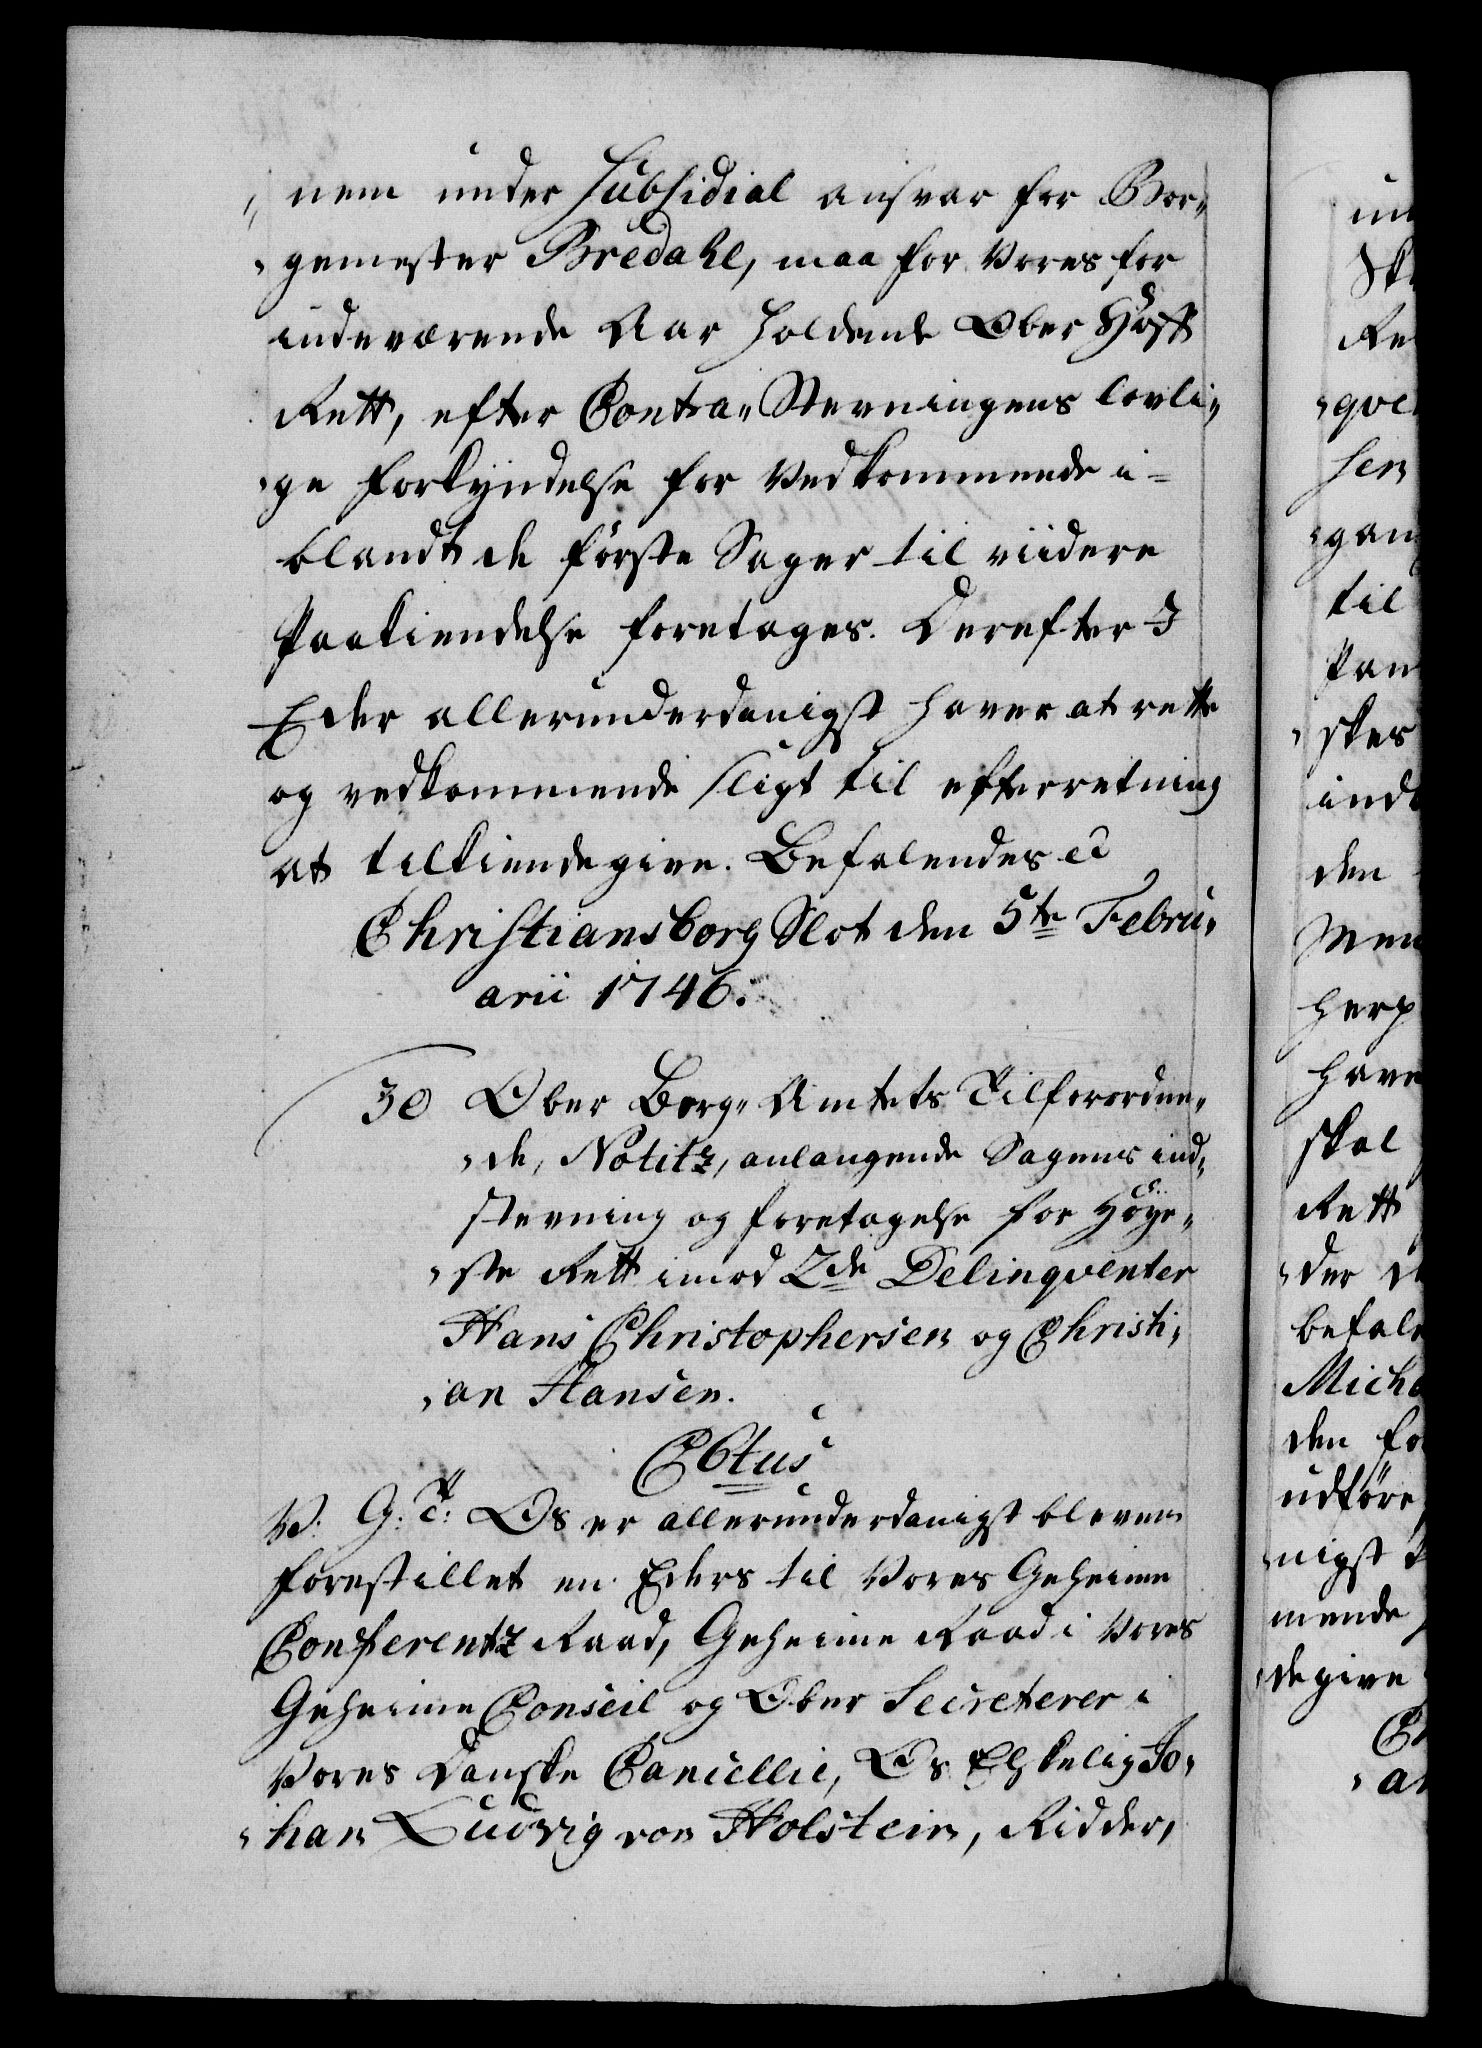 nem under Subsidial ansvar for Bor„
„gemester Bredahl, maa for Vores for
indeværende Aar holdende Ober Hoff
Rett, efter Contra„Stevningens lovli„
„ge Forkyndelse for Vedkommende i=
blandt de förste Sager til viidere
Paakiendelse foretages. Derefter I
Eder allerunderdanigst haver at rette
og vedkommende sligt til efterretning
at tilkiendegive. Befalendes etc
Christiansborg Slot den 5te Febru„
arii 1746.
30 Ober Berg„Amtets Tilforordne„
„de, Notitz, anlangende Sagens ind„
stevning og foretagelse for Höye„
„ste Rett imod 2de Delinqventer
Hans Christophersen og Christi„
„an Hansen.
C6tus
V. G. T. Os er allerunderdanigst bleven
forestillet en Eders til Vores Geheime
Conferentz Raad, Geheime Raad i Vores
Geheime Conseil og Ober Secreterer i
Vores Danske Cancellie, Os Elskelig Jo„
„han Ludvig von Holstein, Ridder,
Rett
den
til
skal
udföre
nigst
mende
degive